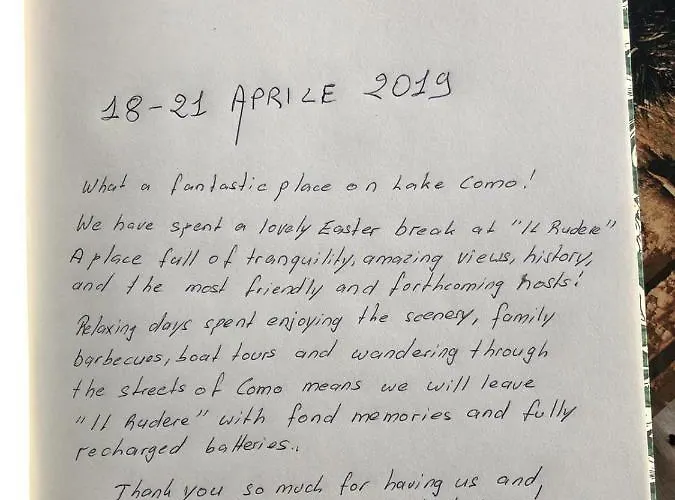 18-21 APRILE 2019
What a fantastic place on Lake Como!
We have spent a lovely Easter break at "Il Rudere"
A place full of tranquility, amazing views, history,
and the most friendly and forthcoming hosts!
Relaxing days spent enjoying the scenery, family
barbecues, boat tours and wandering through
the streets of Como means we will leave
"Il Rudere" with fond memories and fully
recharged batteries..
Thank you so much for having us and,